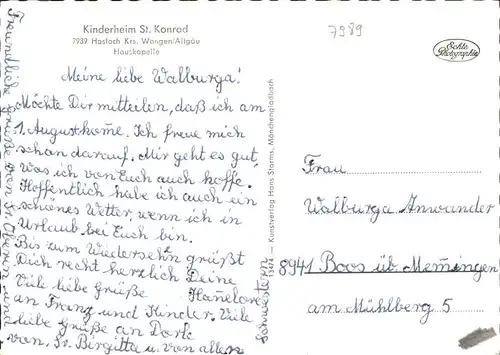 Kinderheim St. Konrad
7989
7989 Haslach Krs. Wangen/Allgäu
Hauskapelle
Echte Photographie
Meine liebe Walburga!
Möchte Dir mitteilen, daß ich am
1. August kome. Ich freue mich
schon darauf. Mir geht es gut
Was ich von Euch auch hoffe.
Hoffentlich habe ich auch ein
schönes Wetter, wenn ich in
Urlaub bei Euch bin.
Bis zum Wiedersehn grüßt
Dich recht herzlich Deine
Viele liebe Grüße Hanelore
an Franz und Kinder. Viele
liebe Grüße an Dorle
von. Sr. Birgitta u. von allen
Schwestern
Freundliche Grüße von Sr. und
13474 – Kunstverlag Hans Storms, Mönchengladbach
Frau
Walburga Anwander
8941 Boos üb. Memingen
am Mühlberg 5